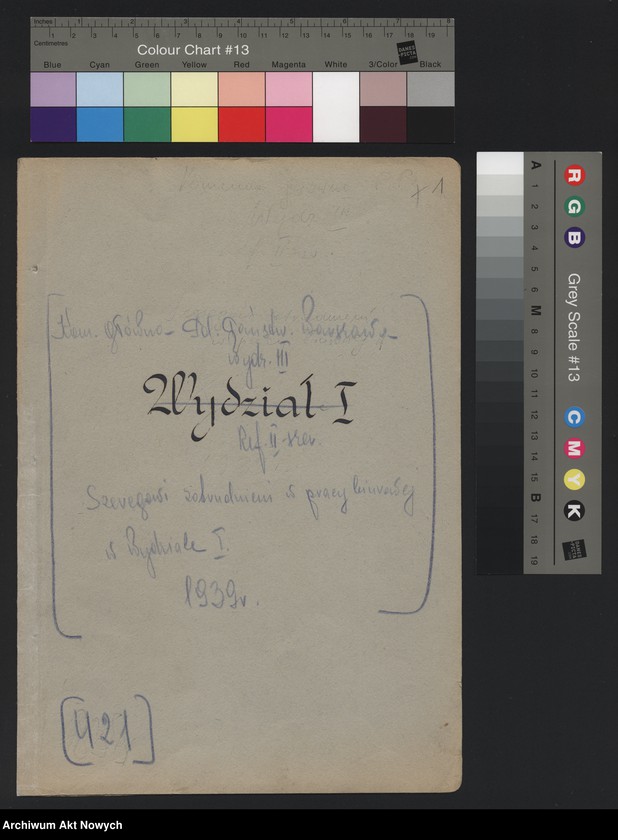 Inches 1 2 3 4 5 6 7 8
Centimetres 1 2 3 4 5 6 7 8 9 10 11 12 13 14 15 16 17 18 19
Colour Chart #13
Blue Cyan Green Yellow Red Magenta White 3/Color Black
1
Kom. Główna - Pol. Państw. Warszawa -
Wydz. III
Wydział I
Ref. II szer.
Szeregowi zatrudnieni w pracy biurowej
w Wydziale I.
1939r.
[421]
A 1 2 3 4 5 6 M 8 9 10 11 12 13 14 15 B 17 18 19
R G B
Grey Scale #13
C M Y K
Archiwum Akt Nowych